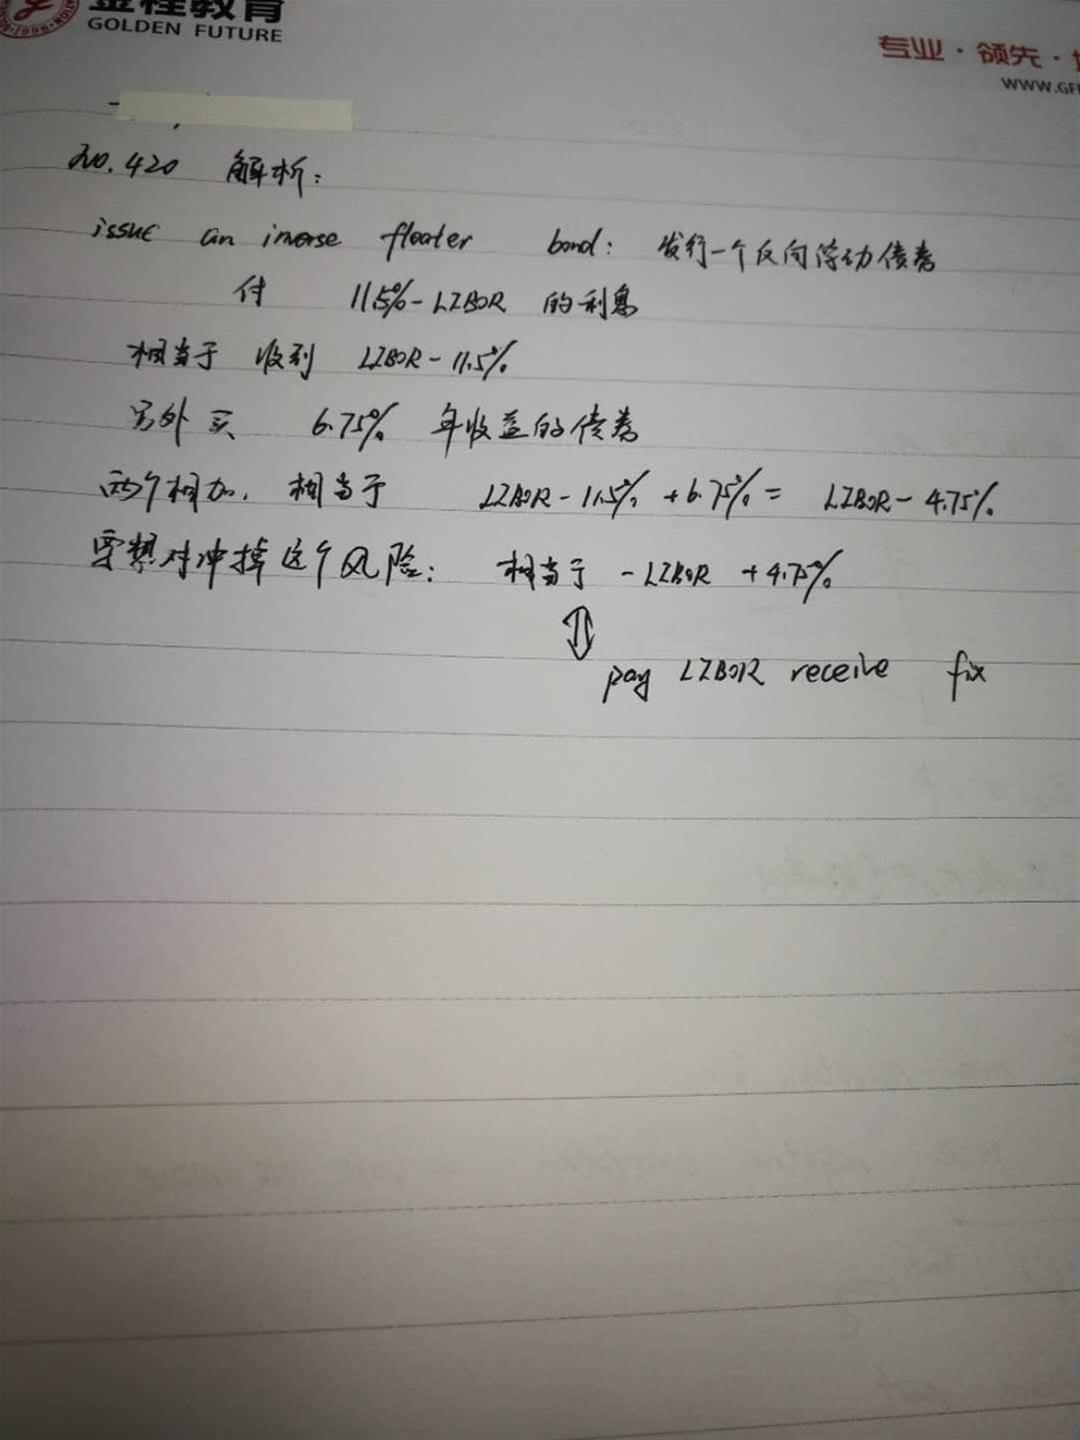 金程教育
GOLDEN FUTURE
专业·领先·
WWW.GF
No.420 解析:
issue an inverse floater bond: 发行一个反向浮动债券
付 11.5%-LIBOR 的利息
相当于 收到 LIBOR-11.5%
另外买 6.75% 年收益的债券
两个相加, 相当于 LIBOR-11.5%+6.75%= LIBOR-4.75%
要想对冲掉这个风险: 相当于 -LIBOR +4.75%
pay LIBOR receive fix